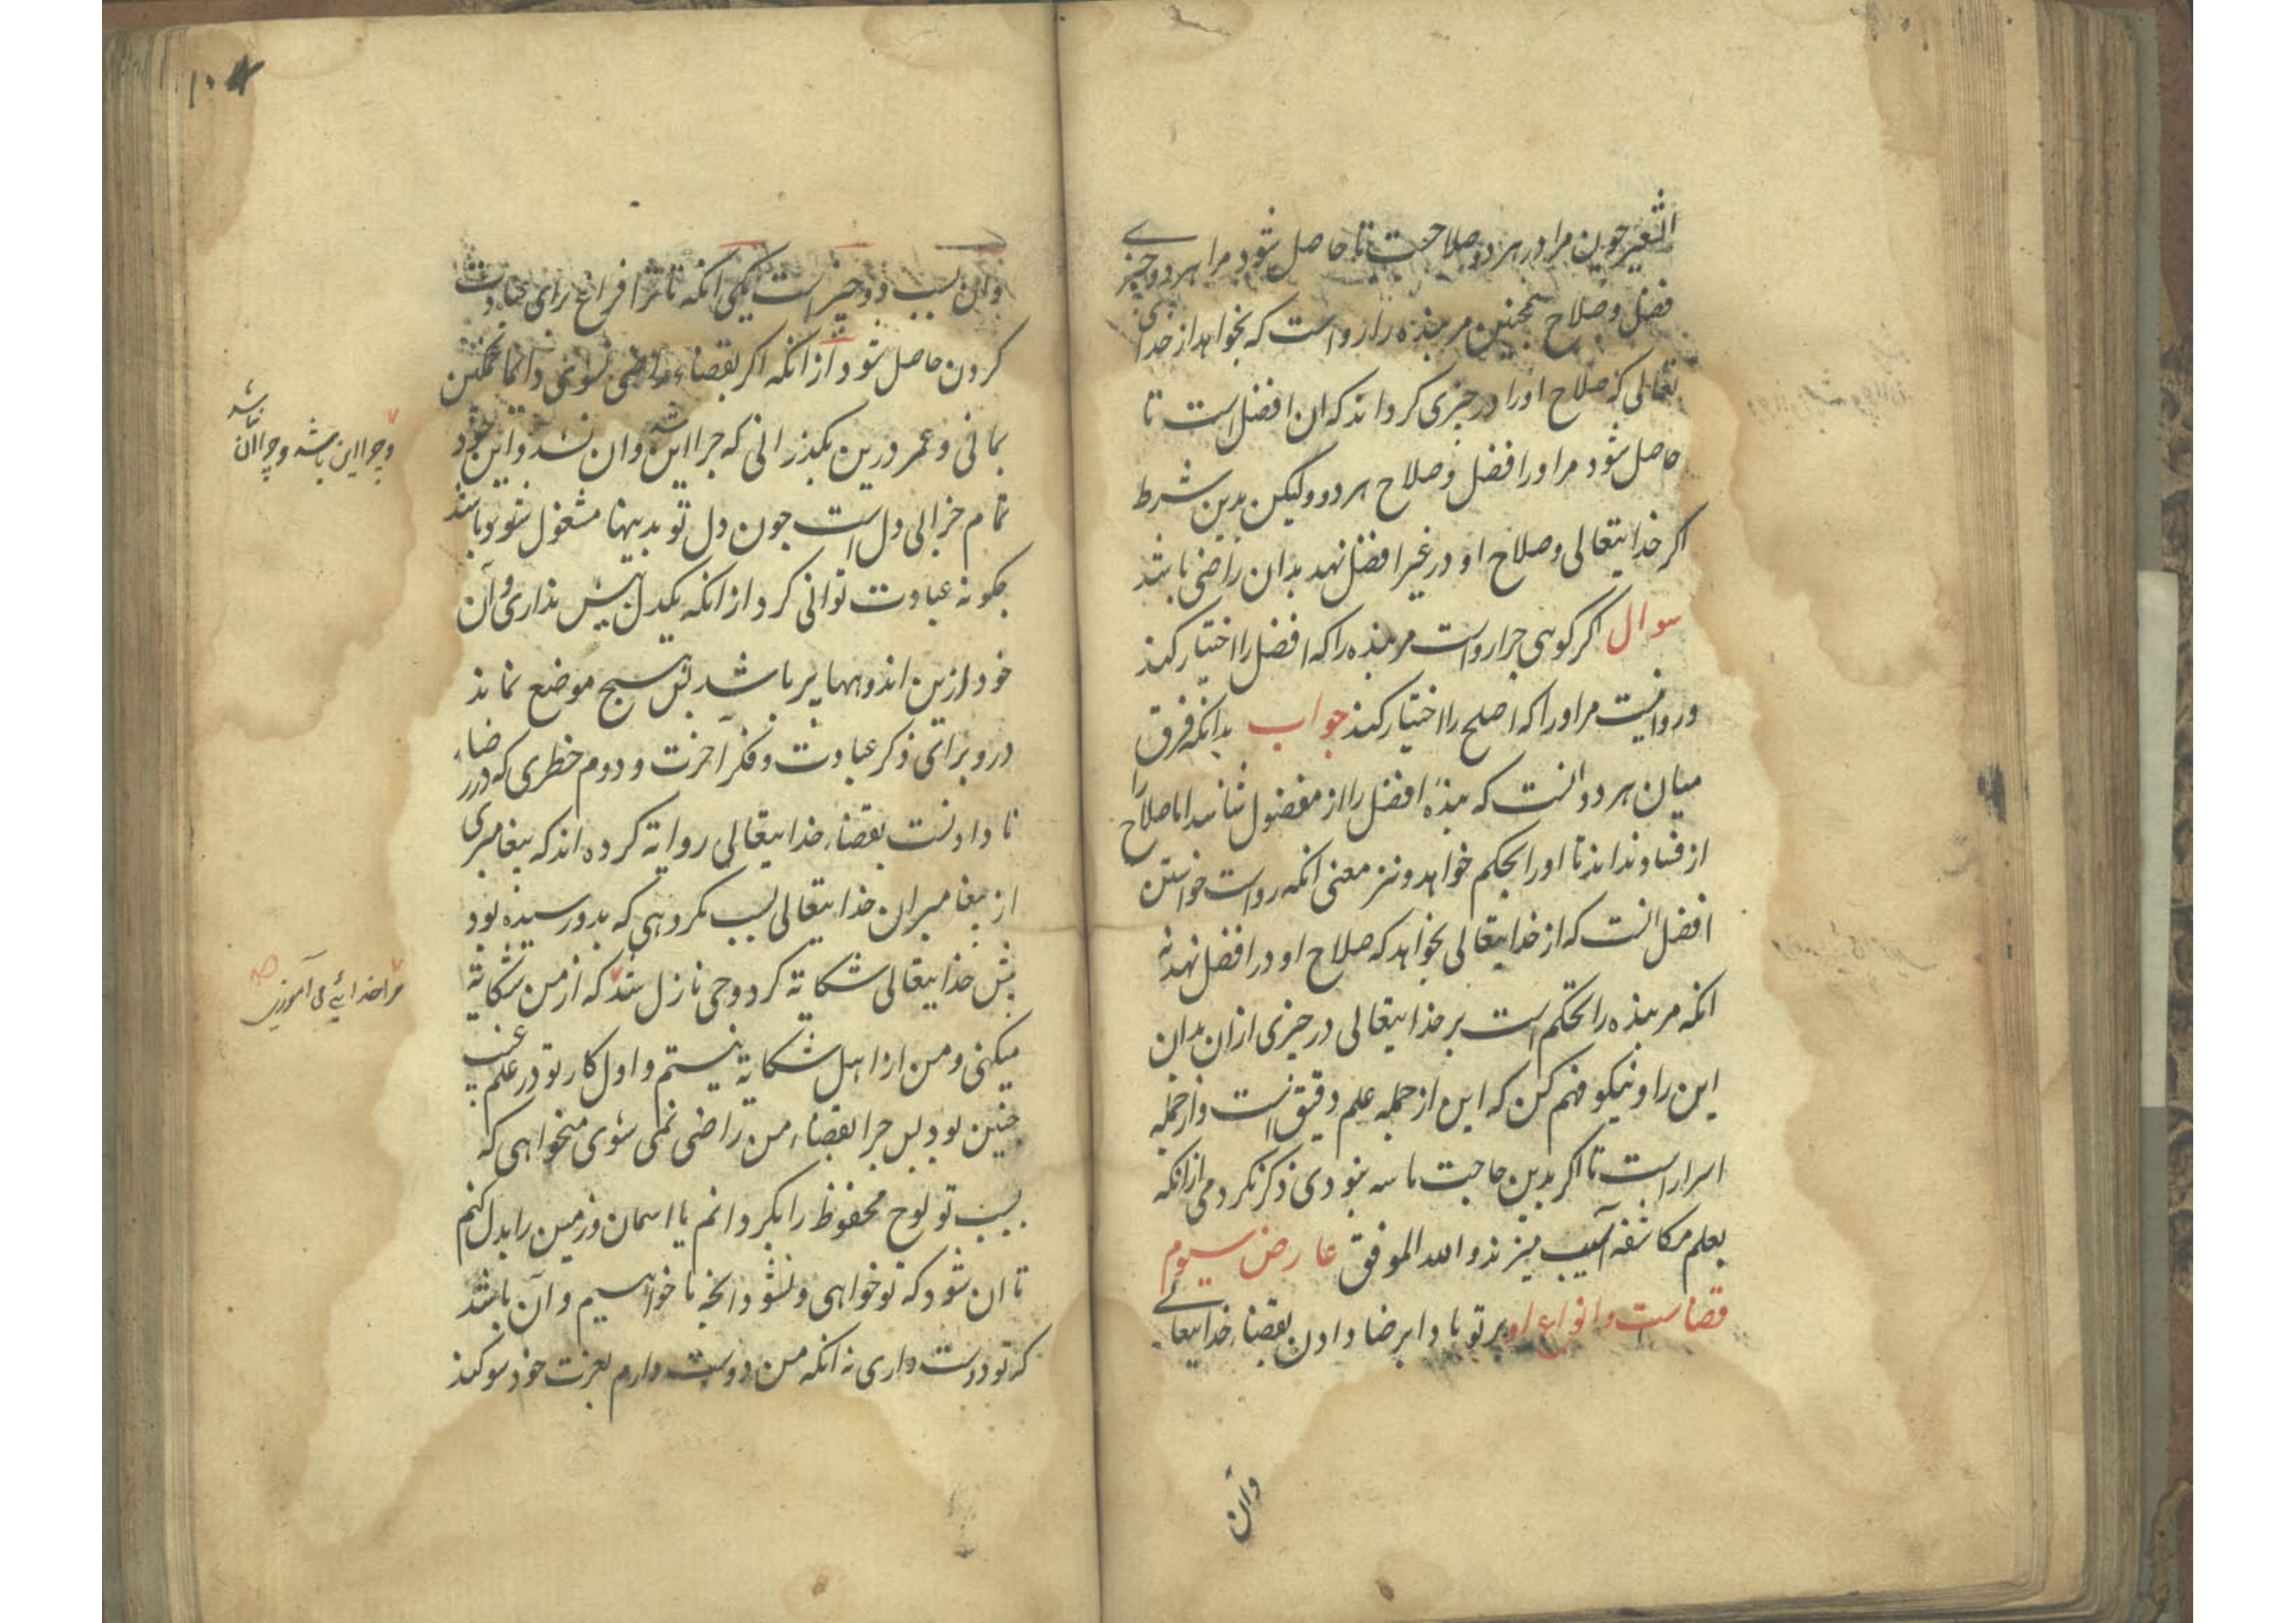 الشعیر چون مرا در هر دو صلاحست تا حاصل شود مرا هر دو چیز
فضل و صلاح همچنین مر بنده را رواست که بخواهد از خدای
تعالی که صلاح او را در چیزی کرداند که ان افضل است تا
حاصل شود مر او را فضل و صلاح هر دو ولیکن بدین شرط
اکر خدایتعالی و صلاح او در غیر افضل نهد بدان راضی باشد
سوال اکر کوہی چرا رواست مر بنده را که افضل را اختیار کند
و روا نیست مر او را که اصلح را اختیار کند جواب بدانکه فرق
میان هر دو انست که بنده افضل را از مفضول شناسد اما صلاح را
از فساد نداند تا او را بحکم خواهد و نیز معنی انکه رواست خواستن
افضل انست که از خدایتعالی بخواهد که صلاح او در افضل نهد نه
انکه مر بنده را تحکم است بر خدایتعالی در چیزی ازان بدان
این را و نیکو فهم کن که این از جمله علم دقیق است و از جمله
اسرار است تا اکر بدین حاجت ما سه نبودی ذکر نکردمی از انکه
بعلم مکاشفه آسیب میزند و الله الموفق عارض سیوم
قضاست و انواع او بر تو بادا برضا دادن بقضاء خدایتعالے
وان
وان بسبب دو چیز است یکی انکه تا ترا فراغ برای عبادت
کردن حاصل شود از انکه اکر بقضاء راضی نشوی دائما غمکین
بمانی و عمر درین بکذرانی که چرا این شد وان نشد و این خود
تمام خرابی دل است چون دل تو بدینها مشغول شود باشد
چکونه عبادت توانی کرد از انکه یکدل بیش نداری و آن
خود ازین اندوهها پر باشد پس هیچ موضع نماند
درو برای ذکر عبادت و فکر آخرت و دوم خطری که در رضاء
نا دادنست بقضاء خدایتعالی روایة کرده اند که پیغامبری
از پیغامبران خدایتعالی بسبب مکروهی که بدو رسیده بود
پیش خدایتعالی شکایة کرد وحی نازل شد که از من شکایة
میکنی و من از اهل شکایة نیستم و اول کار تو در علم غیب
چنین بود پس چرا بقضاء من راضی نمی شوی میخواهی که
بسبب تو لوح محفوظ را بکردانم یا اسمان و زمین را بدل کنم
تا ان شود که تو خواهی و نشود انچه ما خواهیم و آن باشد
که تو دوست داری نه انکه من دوست دارم بعزت خود سوکند
و چرا این باشد و چرا ان نباشد
مرا خدایئے می آموزی